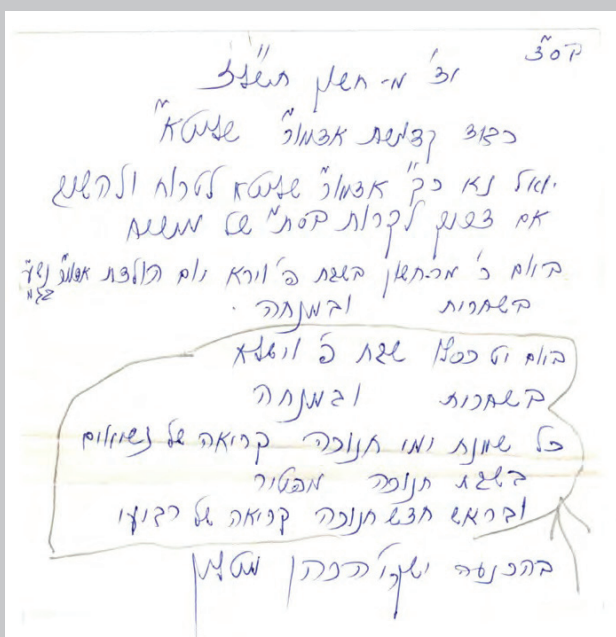 בס"ד
יד' מ- חשון תשנ"ז
כבוד קדושת אדמו"ר שליט"א
יואל נא כ"ק אדמו"ר שליט"א לטרוח ולהשיג
אם צריך לקרות בסת" של משיח
ביום כ' מר-חשון בשבת פ' וירא יום הולדת אדמו"ר נשי"ע
בשחרית ובמנחה .
ביום יט כסלו שבת פ' וישלח
בשחרית ובמנחה
כל שמונת ימי חנוכה קריאה של נשיאים
בשבת חנוכה מפטיר
ובראש חדש חנוכה קריאה של רביעי
בהכנעה הכהן